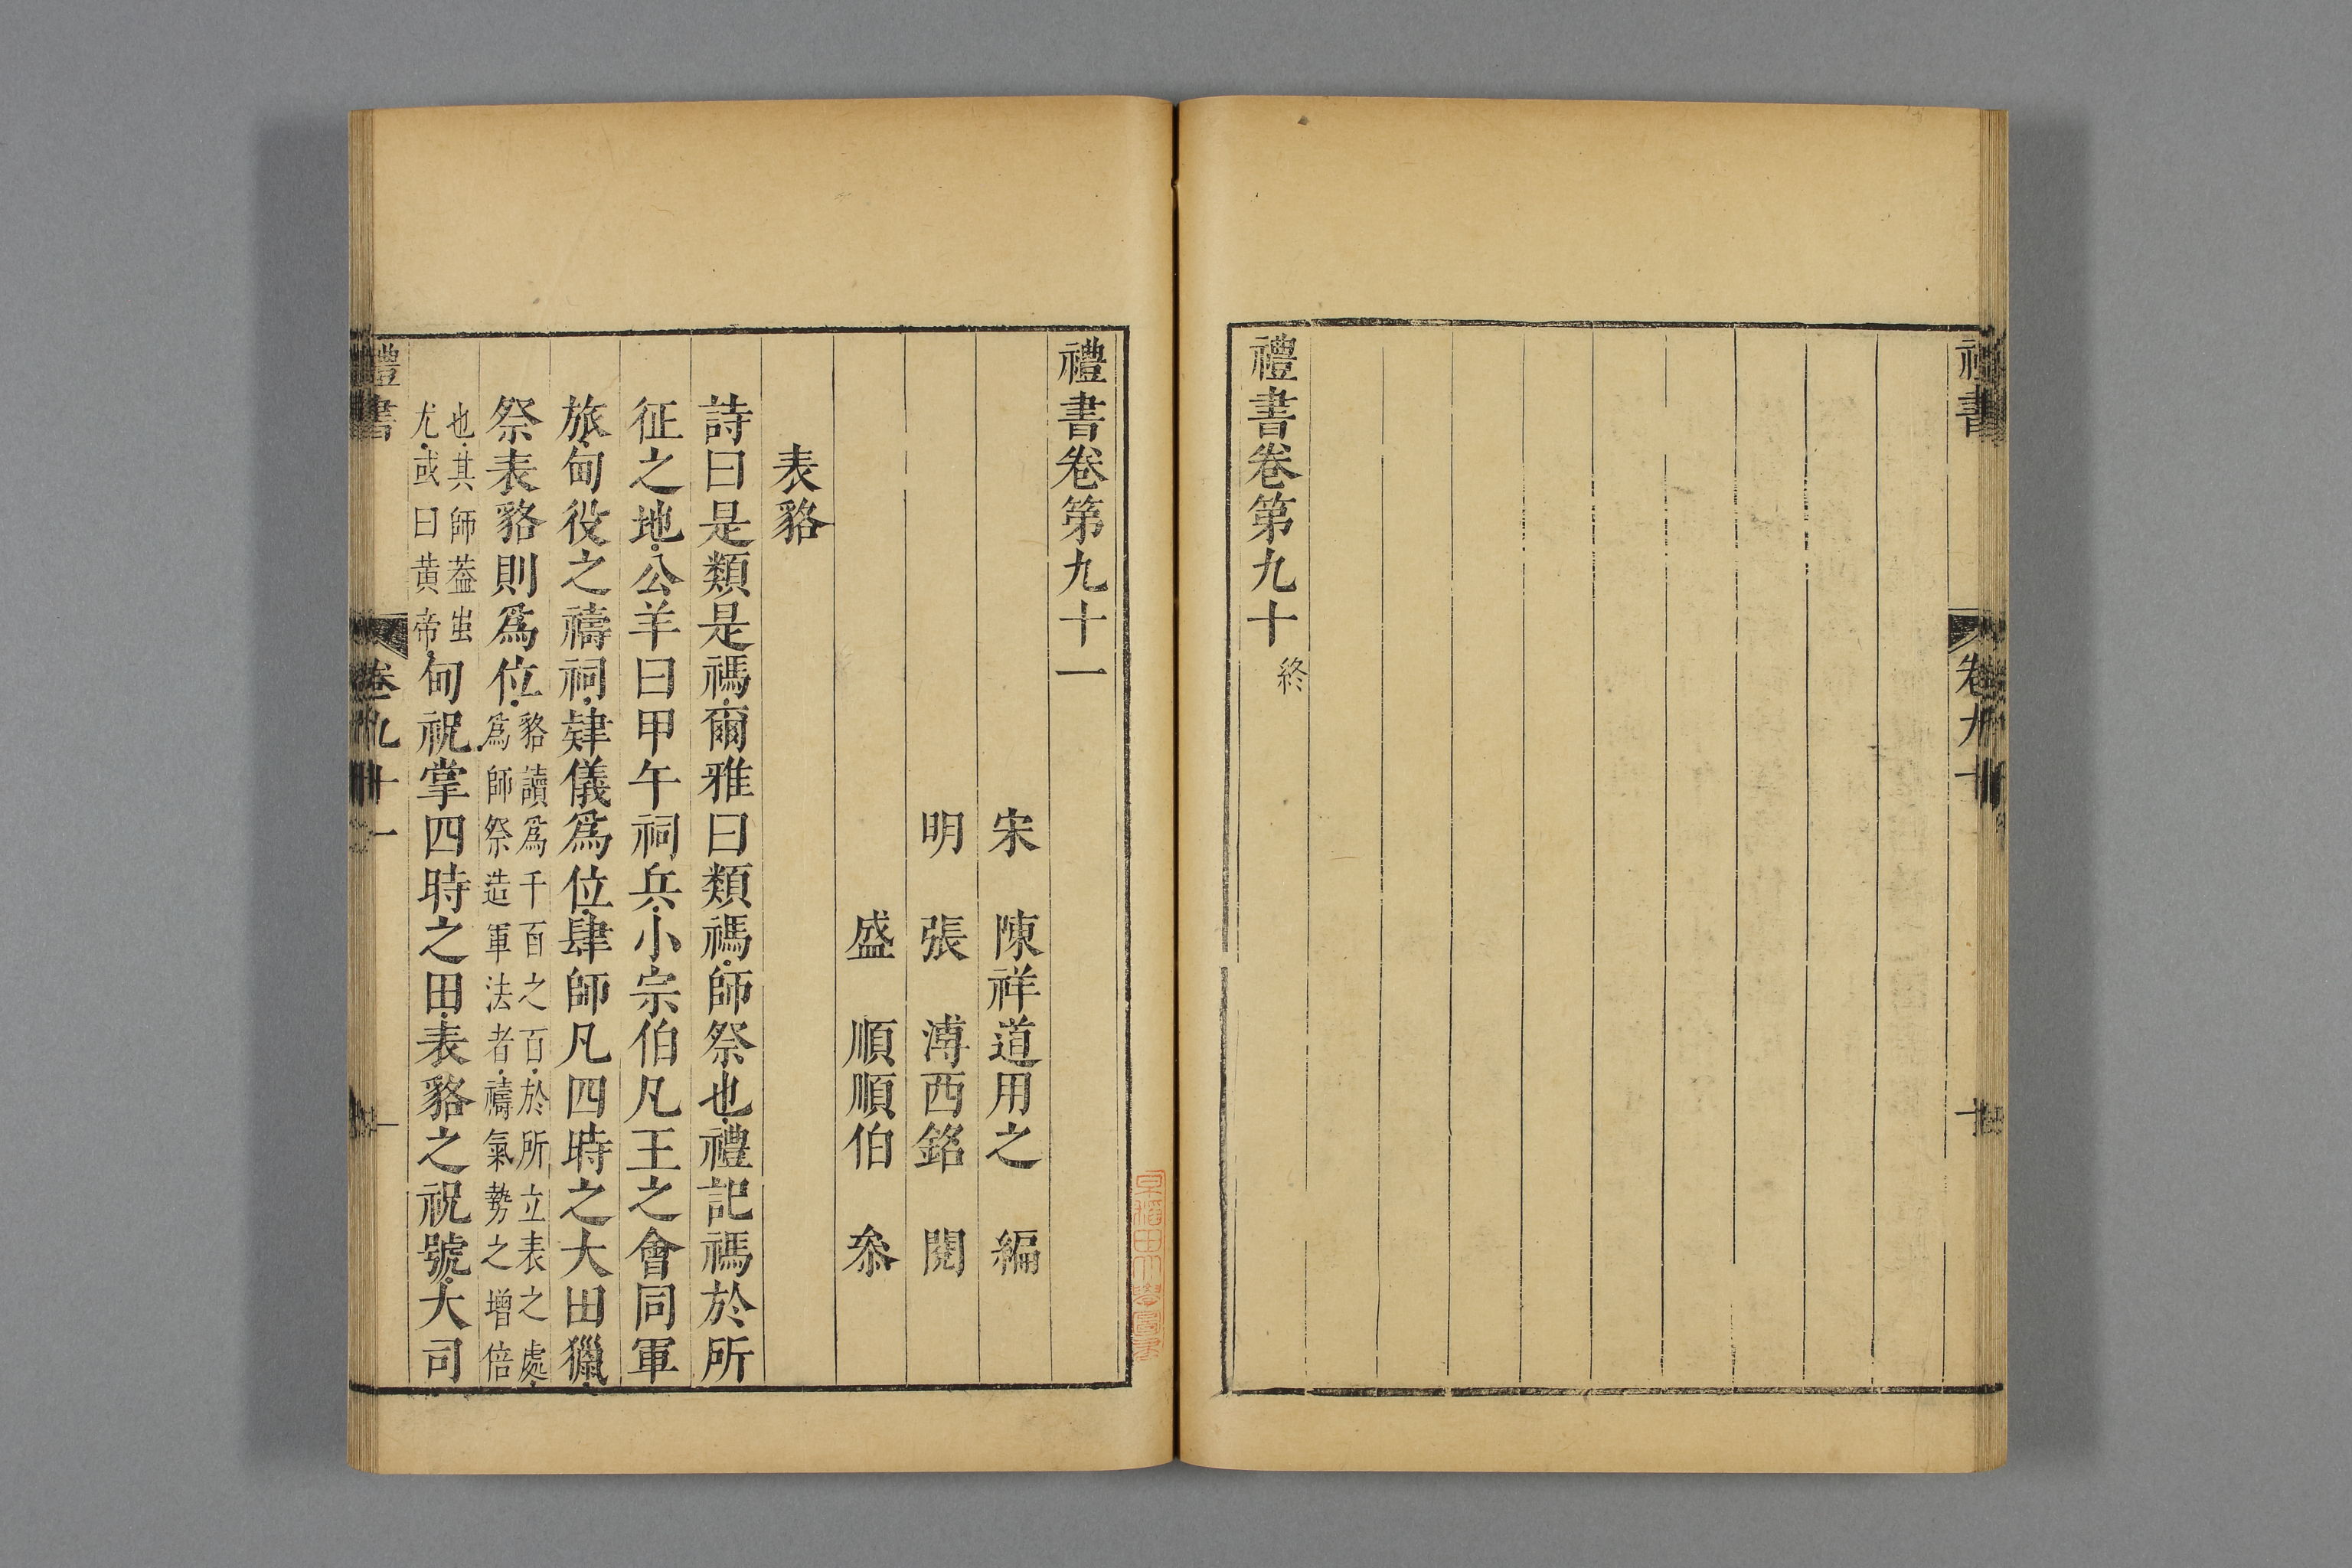 禮書卷第九十 終
禮書卷第九十一
宋 陳祥道用之 編
明 張 溥西銘 閱
盛 順順伯 叅
表貉
詩曰是類是禡爾雅曰類禡師祭也禮記禡於所
征之地公羊曰甲午祠兵小宗伯凡王之會同軍
旅甸役之禱祠肄儀爲位肆師凡四時之大田獵
祭表貉則爲位貉讀爲千百之百於所立表之處
爲師祭造軍法者禱氣勢之增倍
也其師葢蚩
尤或曰黄帝甸祝掌四時之田表貉之祝號大司
禮書 卷九十一 一
早稻田大學圖書